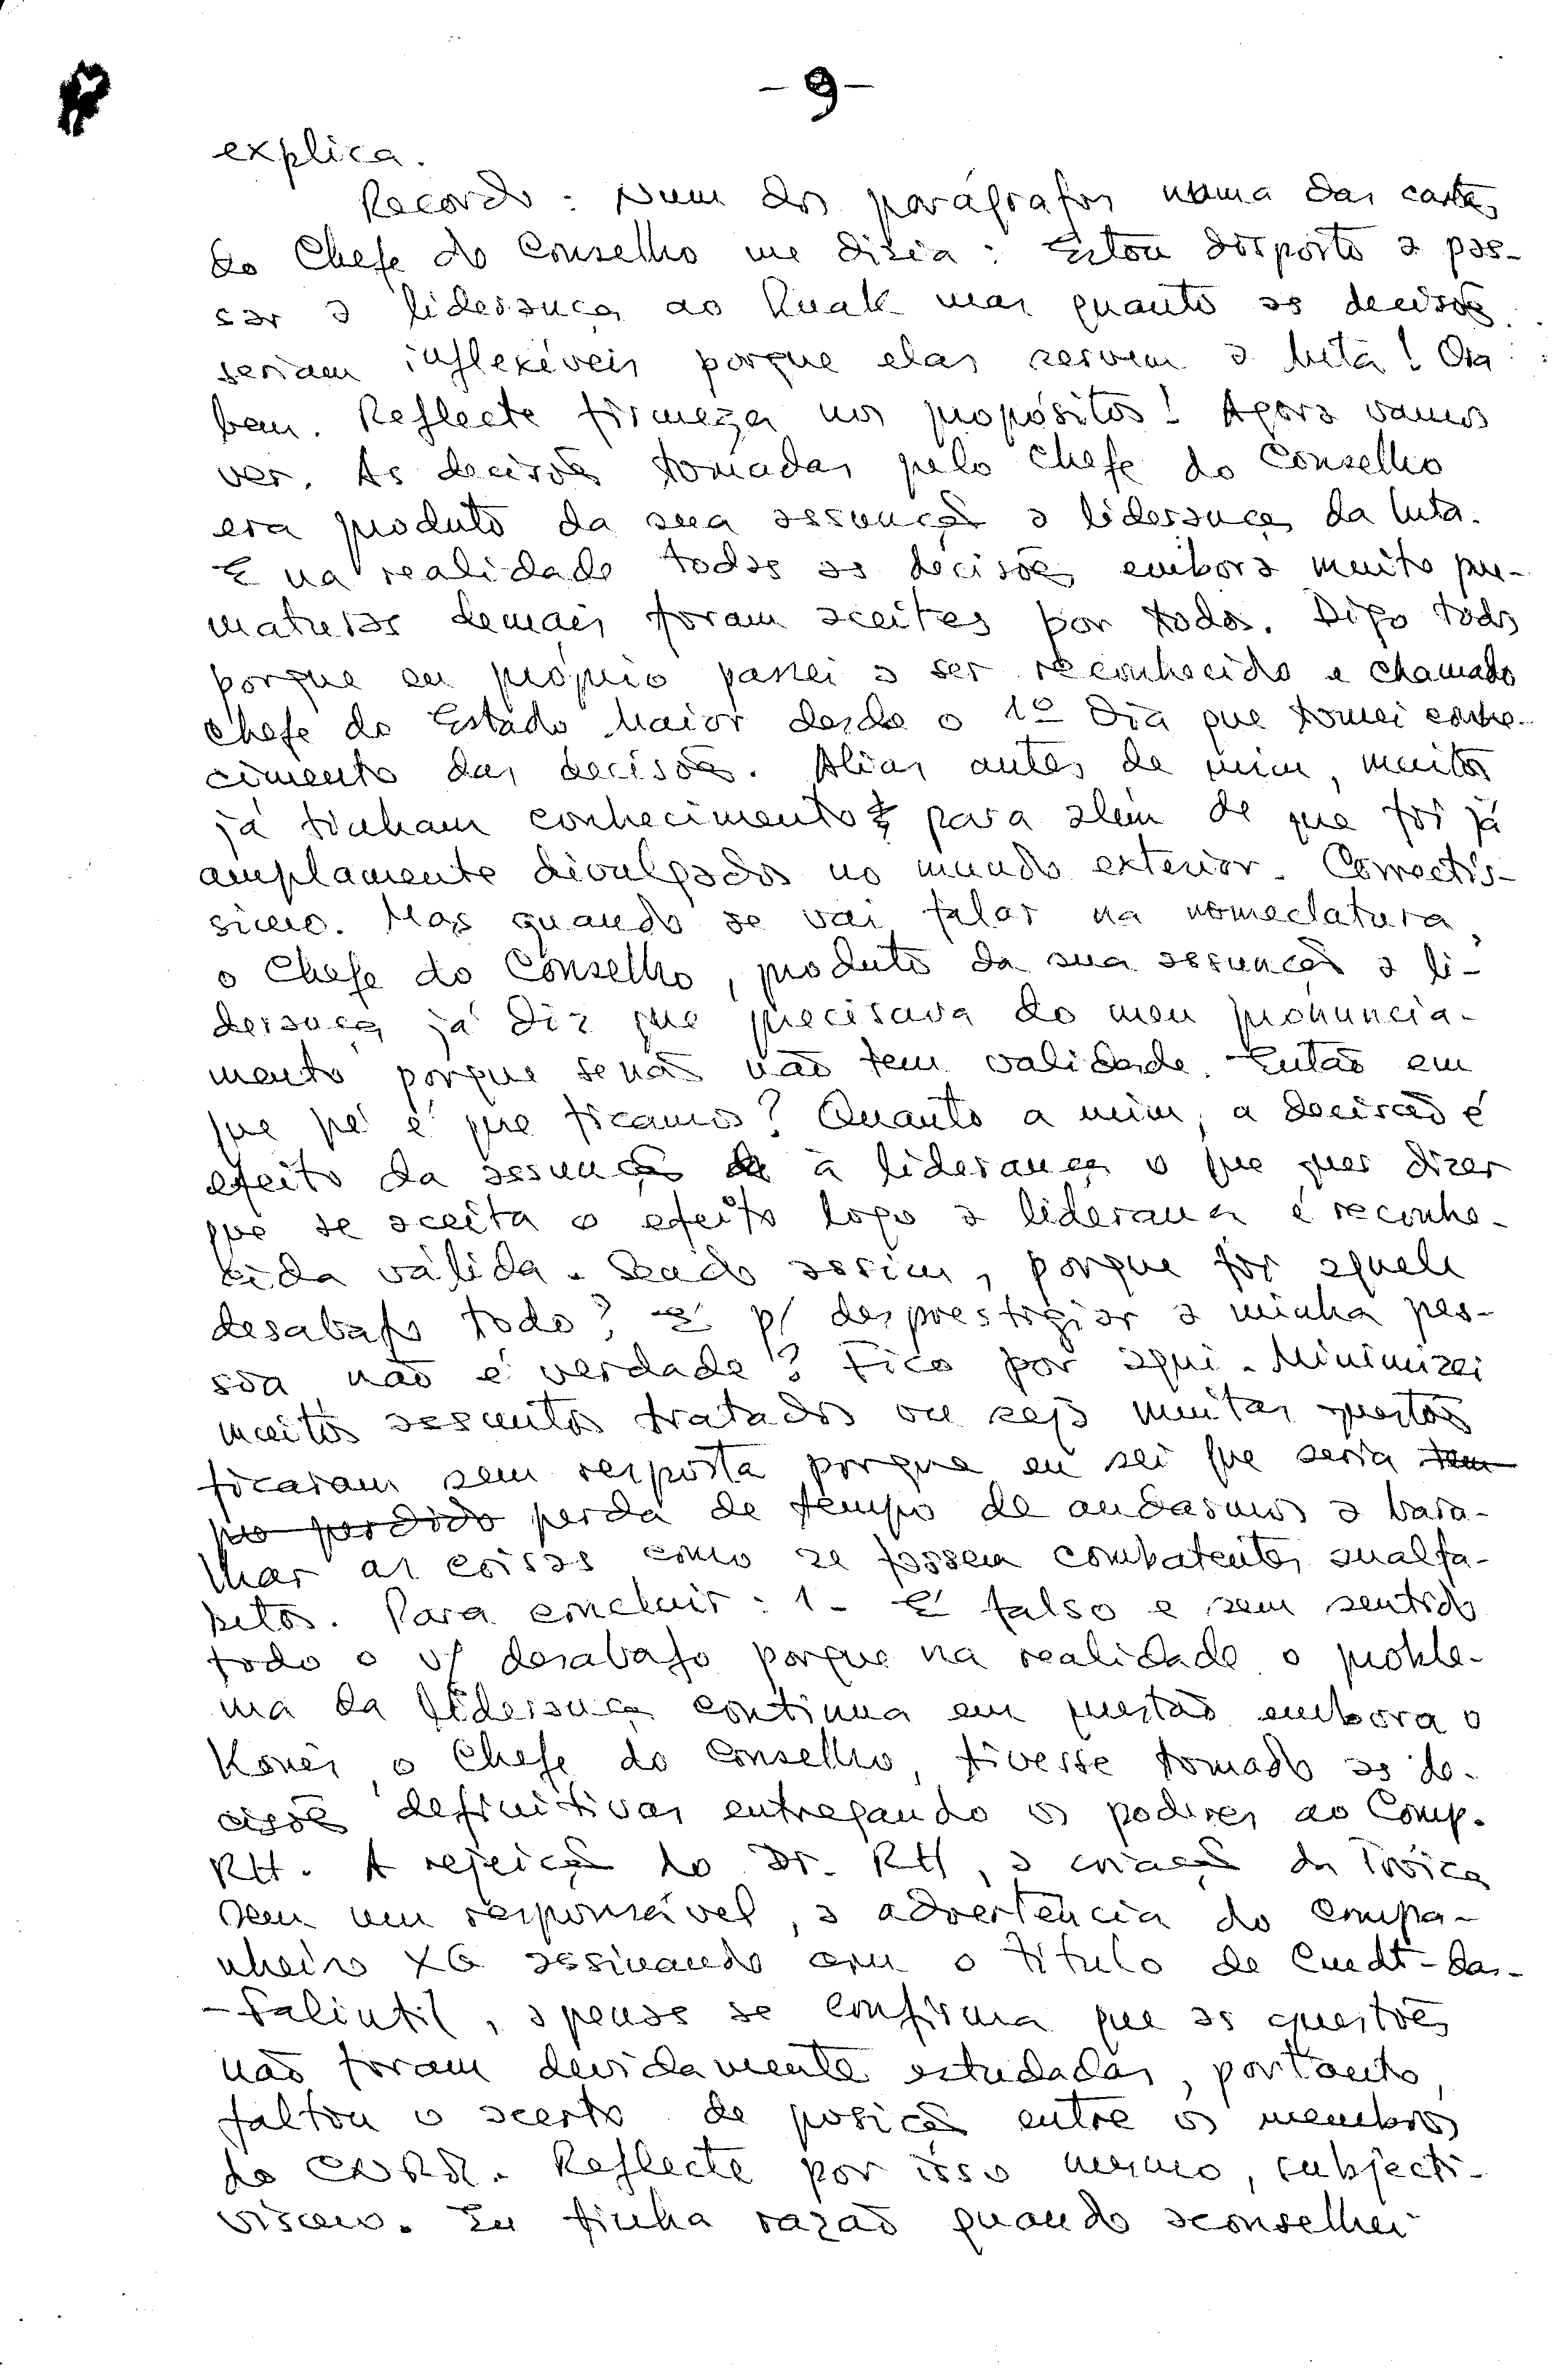 - 9 -
explica.
Recordo: Num dos parágrafos numa das cartas
do Chefe do Conselho me dizia: Estou disposto a pas-
sar a liderança ao Ruak mas quanto as decisões
seriam inflexíveis porque elas servem a luta! Ora
bem. Reflecte firmeza nos propósitos! Agora vamos
ver. As decisões tomadas pelo Chefe do Conselho
era produto da sua assunção a liderança da luta.
E na realidade todas as decisões embora muito pre-
maturas demais foram aceites por todos. Digo todos
porque eu próprio passei a ser reconhecido e chamado
Chefe do Estado Maior desde o 1º dia que tomei conhe-
cimento das decisões. Alias antes de mim, muitos
já tinham conhecimento para além de que foi já
amplamente divulgados no mundo exterior. Correctís-
simo. Mas quando se vai falar na nomeclatura,
o Chefe do Conselho, produto da sua assunção a li-
derança já diz que precisava do meu pronuncia-
mento porque senão não tem validade. Então em
que pé é que ficamos? Quanto a mim, a decisão é
efeito da assunção à liderança o que quer dizer
que se aceita o efeito logo a liderança é reconhe-
cida válida. Sendo assim, porque foi aquele
desabafo todo? É p/ desprestigiar a minha pes-
soa, não é verdade? Fico por aqui. Minimizei
muitos assuntos tratados ou seja muitas questões
ficaram sem resposta porque eu sei que seria tem
po perdido perda de tempo de andarmos a bara-
lhar as coisas como se fossem combatentes analfa-
betos. Para concluir: 1- É falso e sem sentido
todo o v/ desabafo porque na realidade o proble-
ma da liderança continua em questão embora o
Konis, o Chefe do Conselho, tivesse tomado as de-
cisões definitivas entregando os poderes ao Comp.
RH. A rejeição do Dr. RH, a criação da Troica
sem um responsável, a advertência do compa-
nheiro XG assinando com o título de Cmdt-das-
-Falintil, apenas se confirma que as questões
não foram devidamente estudadas, portanto,
faltou o acerto de posição entre os membros
do CNRM. Reflecte por isso mesmo, subjecti-
vismo. Eu tinha razão quando aconselhei